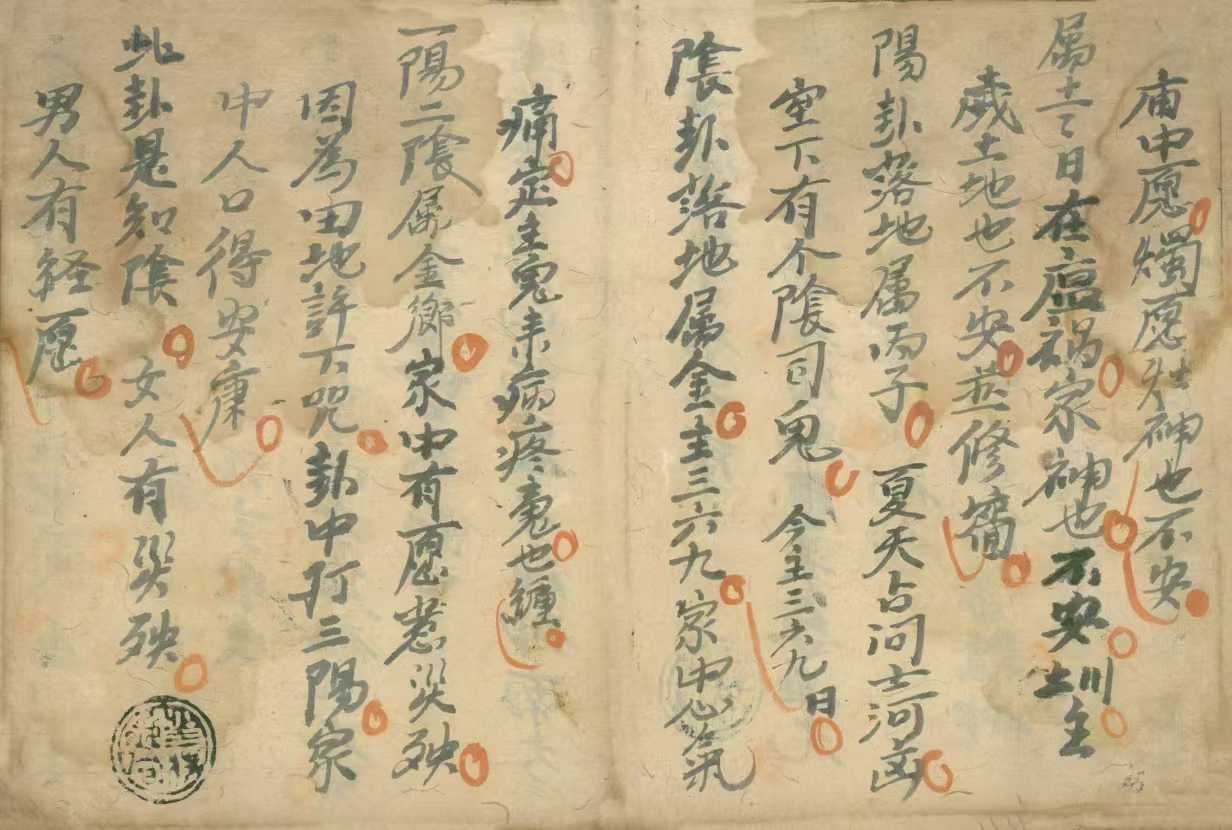 庙中愿燭愿灶神也不安
属土七日在瘟禍家神也不安土圳主
歲土地也不安並修
陽卦落地属丙子夏天占问士河
空下有个隂司鬼今主三六九日
隂卦落地属金主三六九家中心氣
痛定主鬼来病疼鬼也纏
一陽二隂属金鄉家中有愿惹災殃
因為田地許下咒卦中打三陽家
中人口得安康
此卦是知隂女人有災殃
男人有経愿